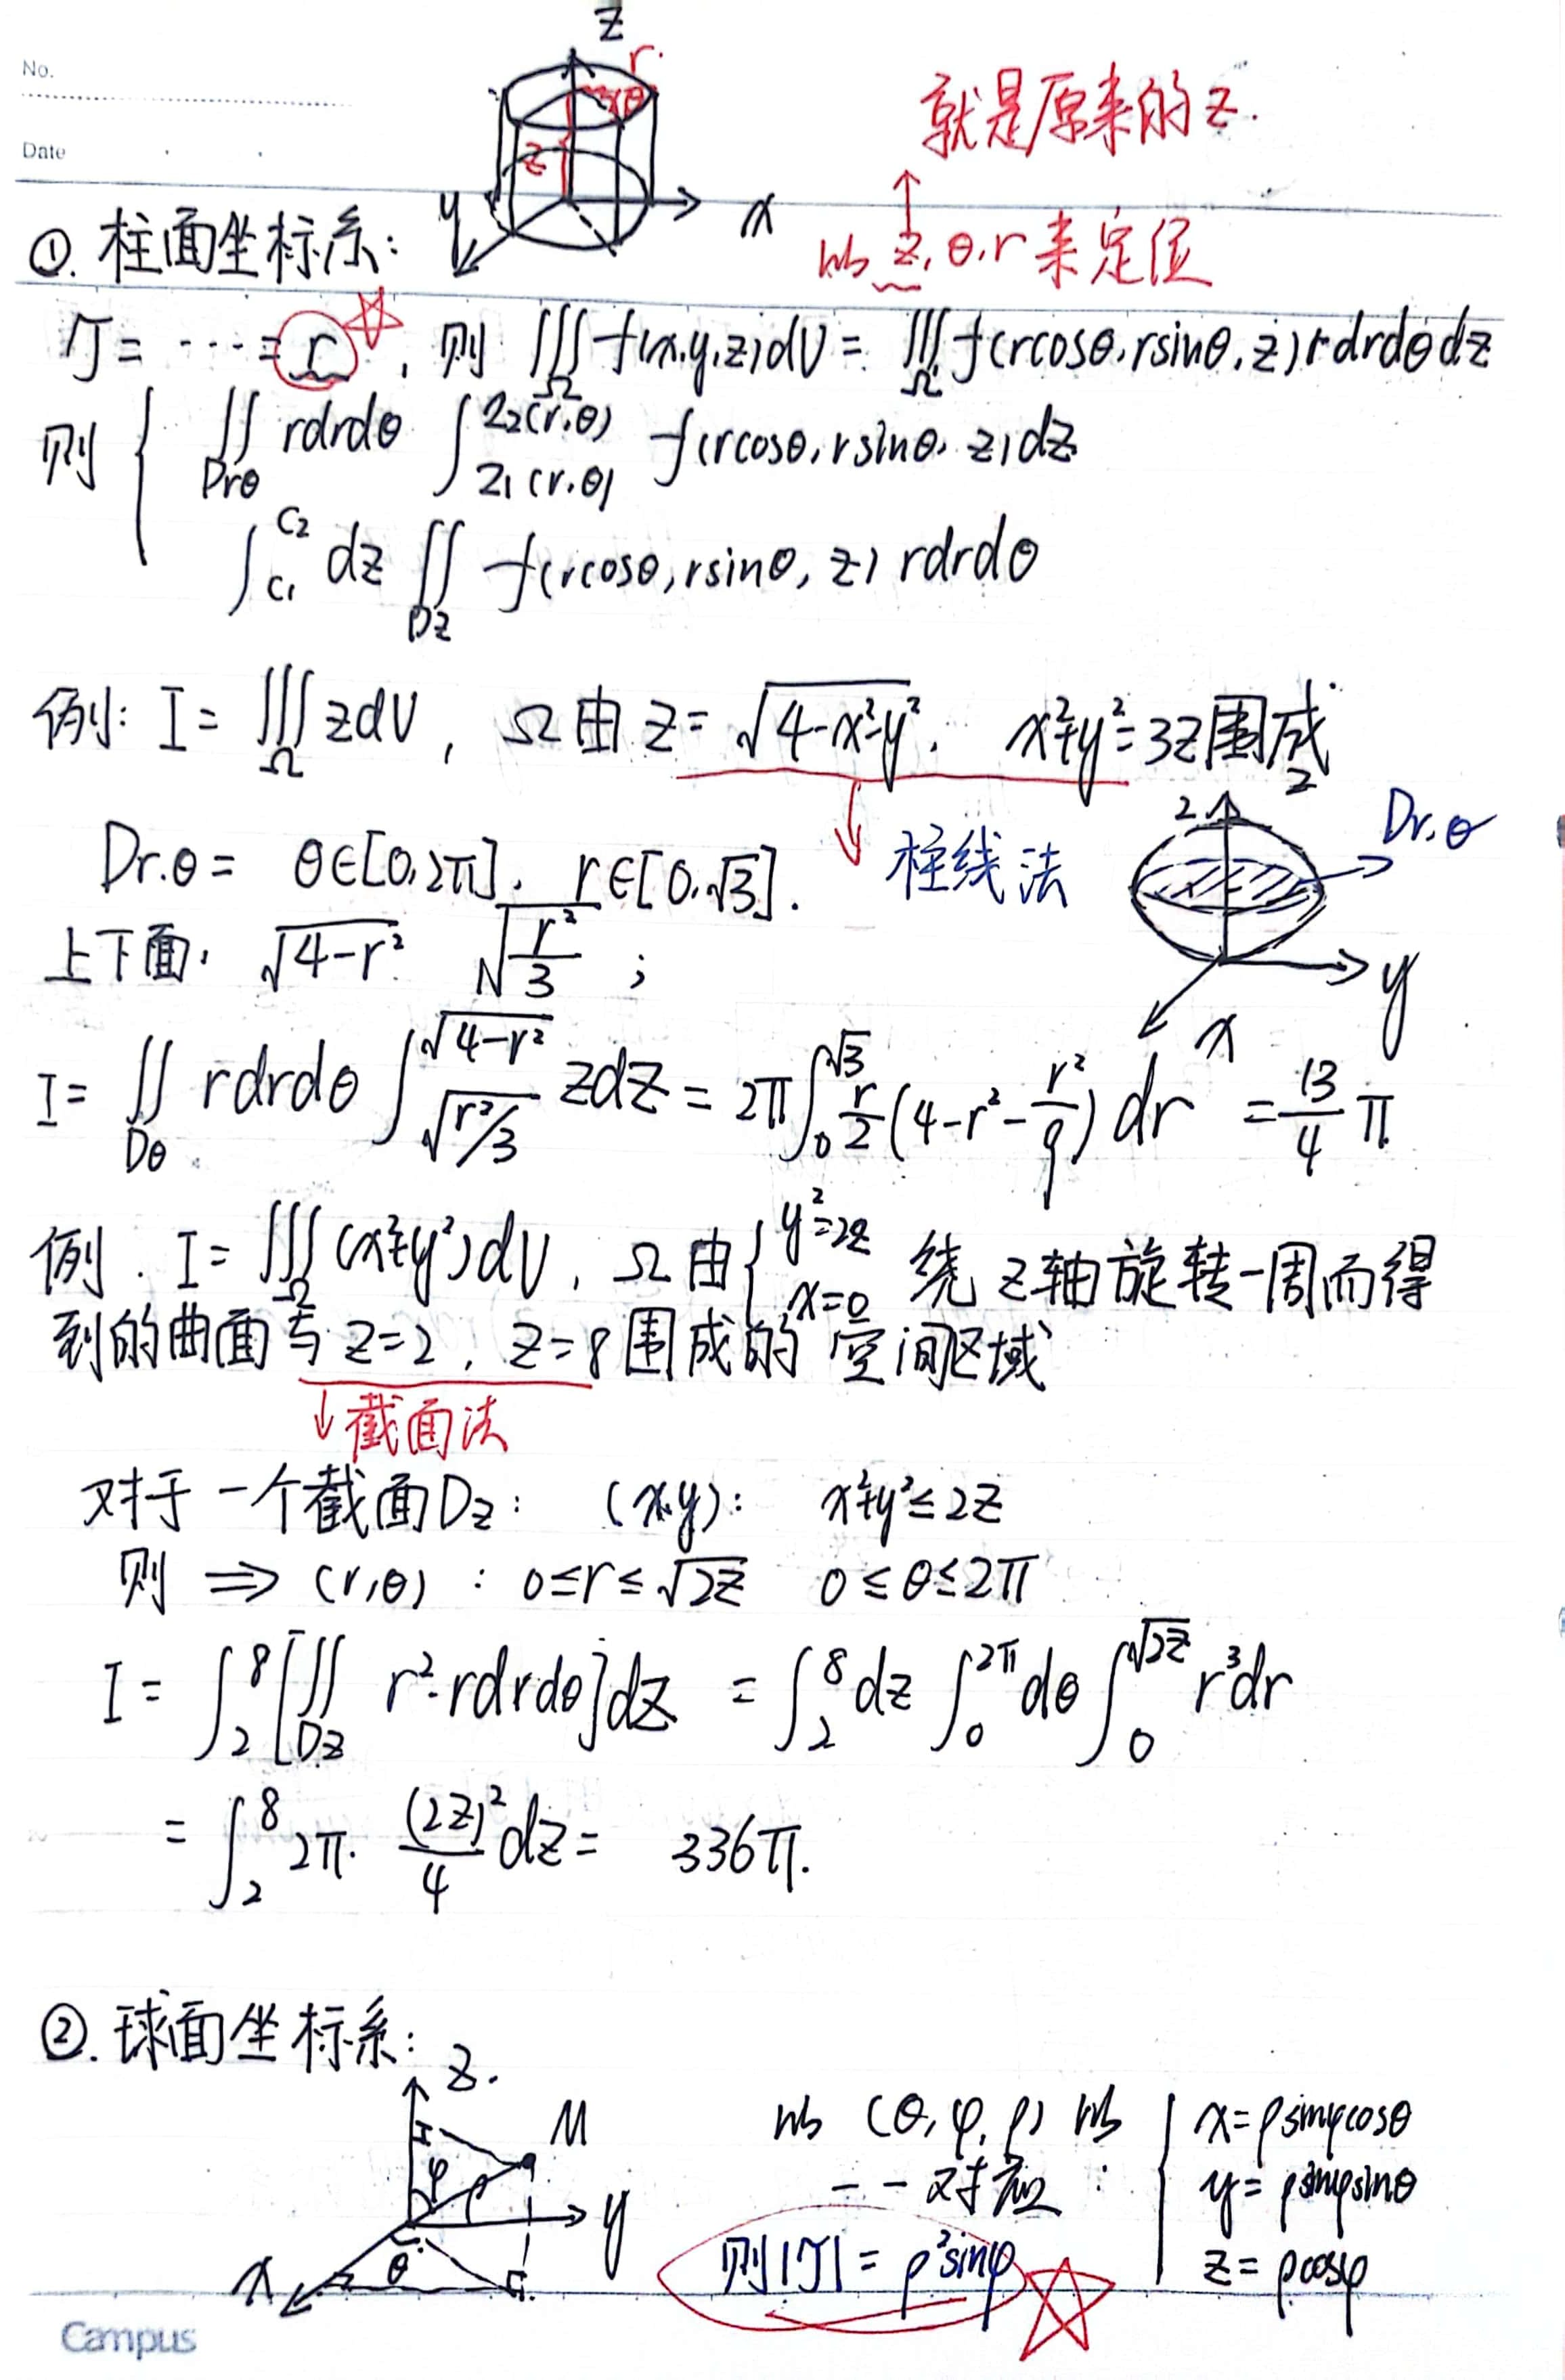 No.
Date
z
r
θ
z
y
x
就是原来的z.
↑
①. 柱面坐标系:
以 z, θ, r 来定位
J = ⋯ = r ☆, 则 ∭_Ω f(x,y,z)dV = ∭_Ω f(rcosθ, rsinθ, z) rdrdθdz
则 { ∬_{Drθ} rdrdθ ∫_{z₁(r,θ)}^{z₂(r,θ)} f(rcosθ, rsinθ, z)dz
∫_{c₁}^{c₂} dz ∬_{Dz} f(rcosθ, rsinθ, z) rdrdθ
例: I = ∭_Ω zdV, Ω由 z = √(4-x²-y²), x²+y²=3z围成
↓ 柱线法
z
2
Dr.θ
y
x
Dr.θ = θ∈[0,2π], r∈[0,√3].
上下面: √(4-r²) √(r²/3) ;
I = ∬_{Dθ} rdrdθ ∫_{√(r²/3)}^{√(4-r²)} zdz = 2π∫₀^{√3} r/2 (4-r²-r²/9) dr = 13/4 π
例. I = ∭_Ω (x²+y²)dV, Ω由 { y²=2z x=0 绕z轴旋转一周而得
到的曲面与z=2, z=8围成的空间区域
↓截面法
对于一个截面Dz: (x,y): x²+y²≤2z
则 ⇒ (r,θ) : 0≤r≤√2z 0≤θ≤2π
I = ∫₂⁸ [∬_{Dz} r²·rdrdθ]dz = ∫₂⁸ dz ∫₀^{2π} dθ ∫₀^{√2z} r³dr
= ∫₂⁸ 2π· (2z)²/4 dz = 336π.
②. 球面坐标系:
z.
M
φ
y
θ
x
以 (θ, φ, ρ) 以 { x=ρsinφcosθ
一一对应 : y=ρsinφsinθ
z=ρcosφ
则|J| = ρ²sinφ ☆
Campus